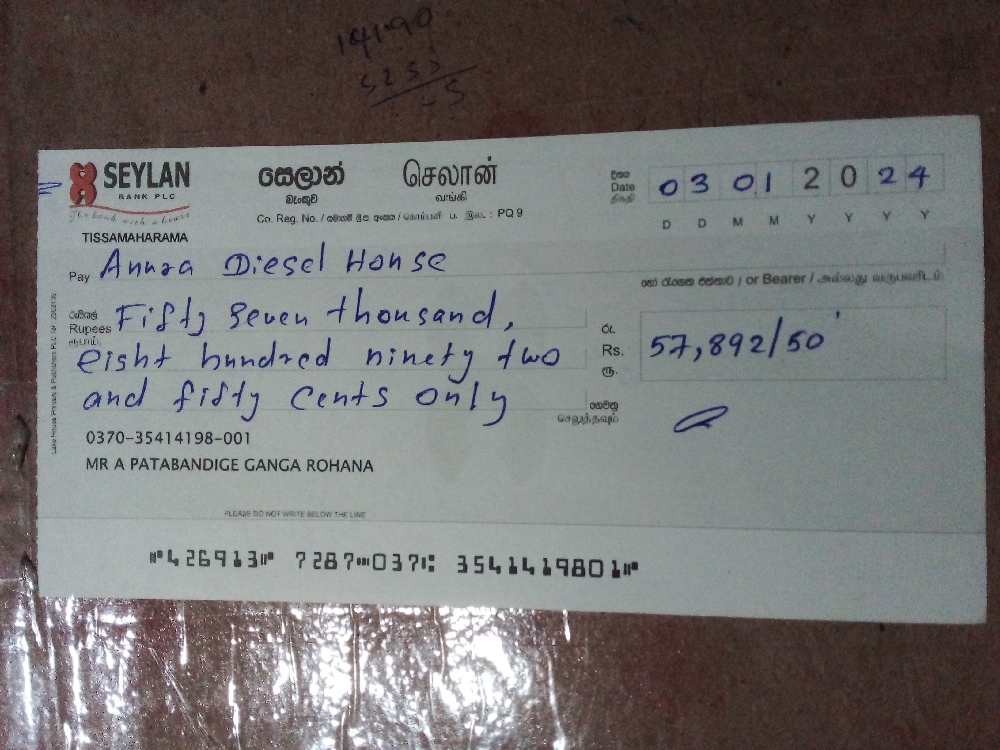 14190
5255
SEYLAN
BANK PLC
The bank with a heart
TISSAMAHARAMA
සෙලාන්
බැංකුව
செலான்
வங்கி
Co. Reg. No. / PQ 9
දිනය
Date
திகதி
0 3 0 1 2 0 2 4
D D M M Y Y Y Y
Pay Annra Diesel House
හෝ රැගෙන එන්නාට / or Bearer / அல்லது வருபவரிடம்
රුපියල්
Rupees
ரூபாய்
Fifty Seven thousand,
eight hundred ninety two
and fifty Cents Only
රු.
Rs.
ரூ.
57,892/50
ගෙවනු
செலுத்தவும்
0370-35414198-001
MR A PATABANDIGE GANGA ROHANA
PLEASE DO NOT WRITE BELOW THE LINE
⑈426913⑈ 7287⑉037⑆ 3541419801⑈